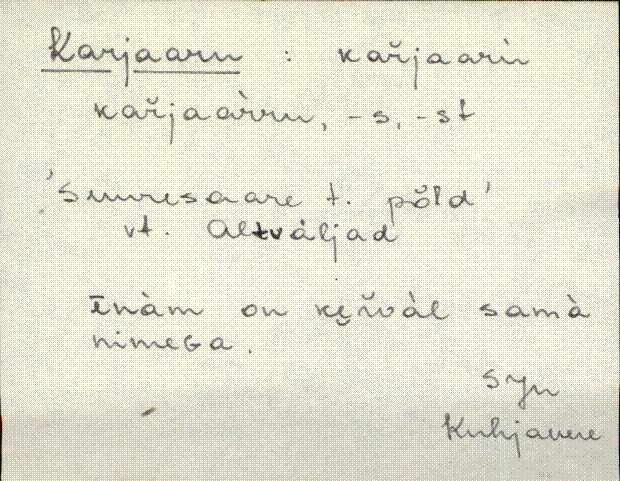 Karjaaru : kař́jaarù
kař́jaàrru, -s, -st
'Suuresaare t. põld'
vt. Altväljad
Īnàm on kę̌řvàl samà
nimeGa.
SJn
Kuhjavere